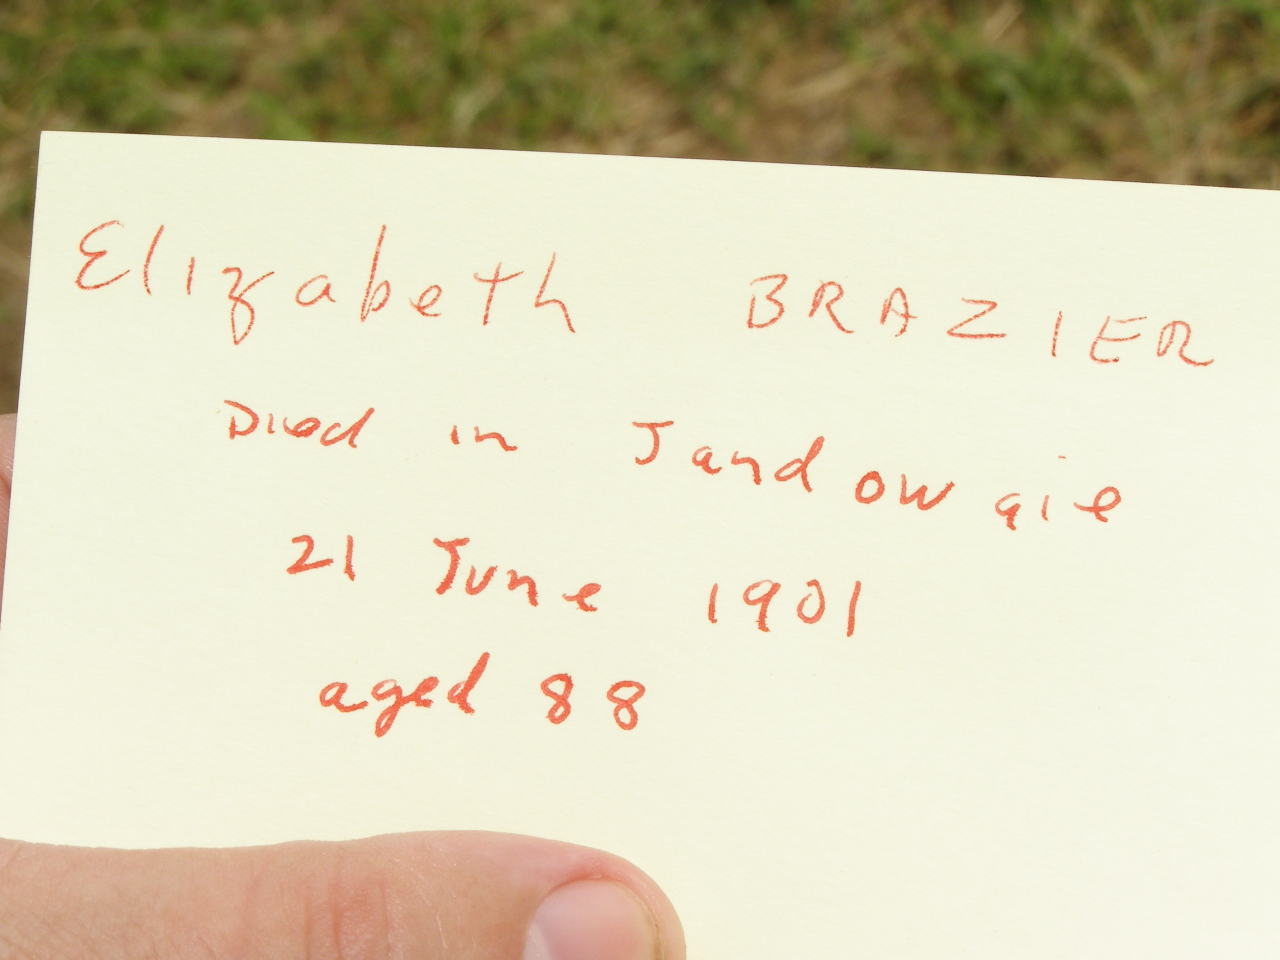 Elizabeth BRAZIER
Died in Jandowaie
21 June 1901
aged 88